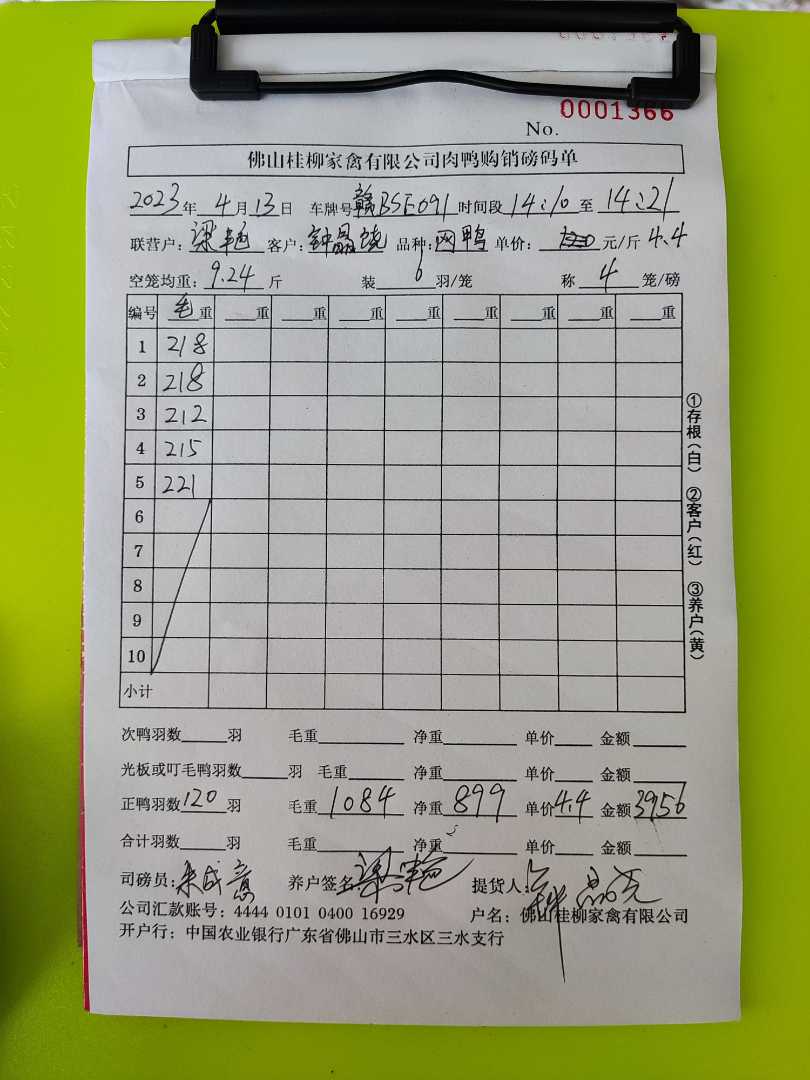 No. 0001366
佛山桂柳家禽有限公司肉鸭购销磅码单
2023年 4月 13日 车牌号赣BSF091 时间段 14:10 至 14:21
联营户: 梁艳 客户: 钟晶饶 品种: 网鸭 单价: 元/斤 4.4
空笼均重: 9.24 斤 装 6 羽/笼 称 4 笼/磅
编号 毛重 重 重 重 重 重 重 重 重
1 218
2 218
3 212
4 215
5 221
6
7
8
9
10
小计
①存根(白) ②客户(红) ③养户(黄)
次鸭羽数 羽 毛重 净重 单价 金额
光板或叮毛鸭羽数 羽 毛重 净重 单价 金额
正鸭羽数 120 羽 毛重 1084 净重 899 单价 4.4 金额 3956
合计羽数 羽 毛重 净重 单价 金额
司磅员: 朱成意 养户签名 梁艳 提货人:
公司汇款账号: 4444 0101 0400 16929 户名: 佛山桂柳家禽有限公司
开户行: 中国农业银行广东省佛山市三水区三水支行